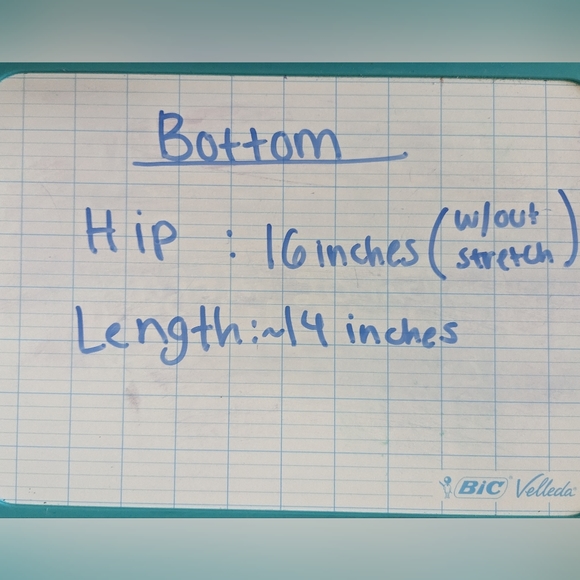 Bottom
Hip : 16 inches (w/out stretch)
Length:~14 inches
BIC Velleda